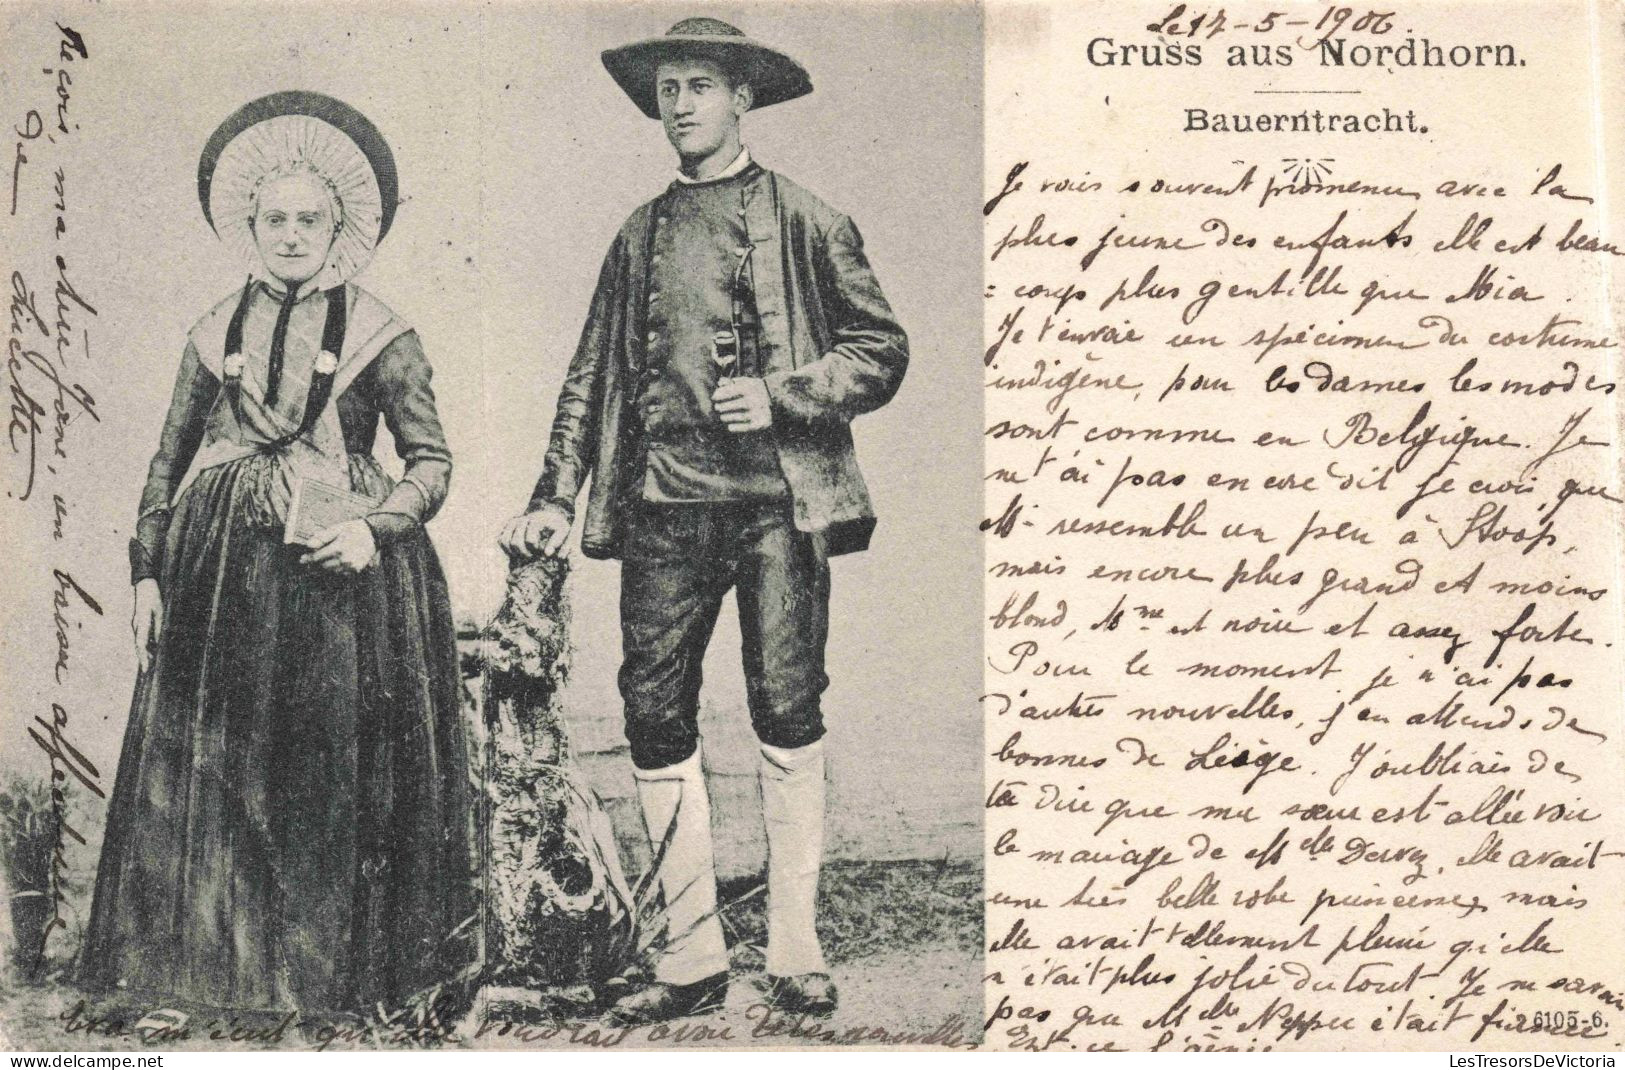 Le 17-5-1906.
Gruss aus Nordhorn.
Bauerntracht.
Je vais souvent promener avec la
plus jeune des enfants elle est beau
= coup plus gentille que Mia.
Je t'envoie un spécimen du costume
indigène, pour les dames les modes
sont comme en Belgique. Je
ne t'ai pas encore dit je crois, que
Mr ressemble un peu à Stoop,
mais encore plus grand et moins
blond, Mme est noire et assez forte.
Pour le moment je n'ai pas
d'autres nouvelles, j'en attends de
bonnes de Liège. J'oubliais de
te dire que ma sœur est allée voir
le mariage de Mlle elle avait
une très belle robe princesse, mais
elle avait tellement pleuré qu'elle
n'était plus jolie du tout. Je ne savais
pas que Mlle était fiancée
Est-ce l'aînée
6105-6.
m'écrit qu'elle voudrait avoir de tes nouvelles
Reçois, ma chère Jane, un baiser affectueux
de Lucette.
LesTresorsDeVictoria